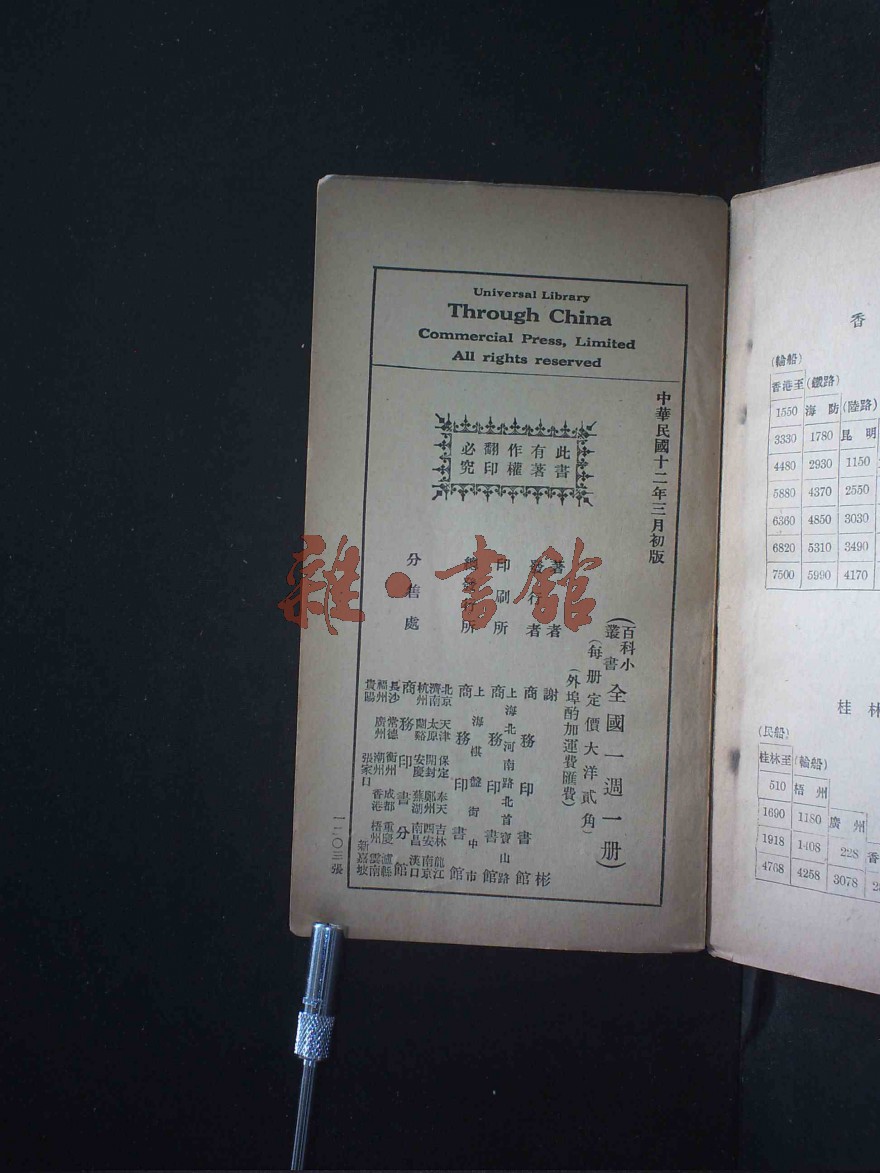 Universal Library
Through China
Commercial Press, Limited
All rights reserved
中華民國十二年三月初版
此書
有著
作權
翻印
必究
(百科小叢書)全國一週一册)
(每册定價大洋貳角)
(外埠酌加運費匯費)
著者 謝彬
發行者 商務印書館
印刷所 上海北河南路北首寶山路 商務印書館
總發行所 上海棋盤街中市 商務印書館
分售處 商務印書分館
北京 天津 保定 奉天 吉林 龍江
濟南 太原 開封 鄭州 西安 南京
杭州 蘭谿 安慶 蕪湖 南昌 漢口
長沙 常德 衡州 成都 重慶 瀘縣
福州 廣州 潮州 香港 梧州 雲南
貴陽 張家口 新嘉坡
一二〇三張
雜·書館
香
(輪船)
香港至 (鐵路)
1550 海防 (陸路)
3330 1780 昆明
4480 2930 1150
5880 4370 2550
6360 4850 3030
6820 5310 3490
7500 5990 4170
桂林
(民船)
桂林至 (輪船)
510 梧州
1690 1180 廣州
1918 1408 228 香
4768 4258 3078